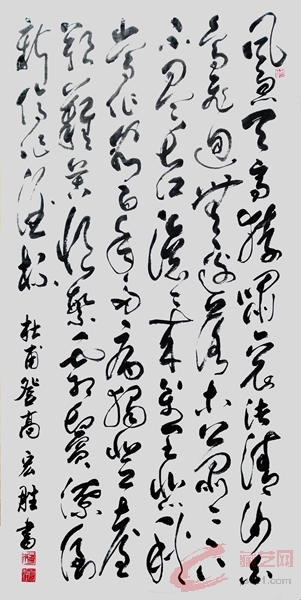 風急天高猿嘯哀渚清沙白
鳥飛迴無邊落木蕭蕭下
不盡長江滾滾來萬里悲秋
常作客百年多病獨登臺
艱難苦恨繁霜鬢潦倒
新停濁酒杯 杜甫登高 宏胜書